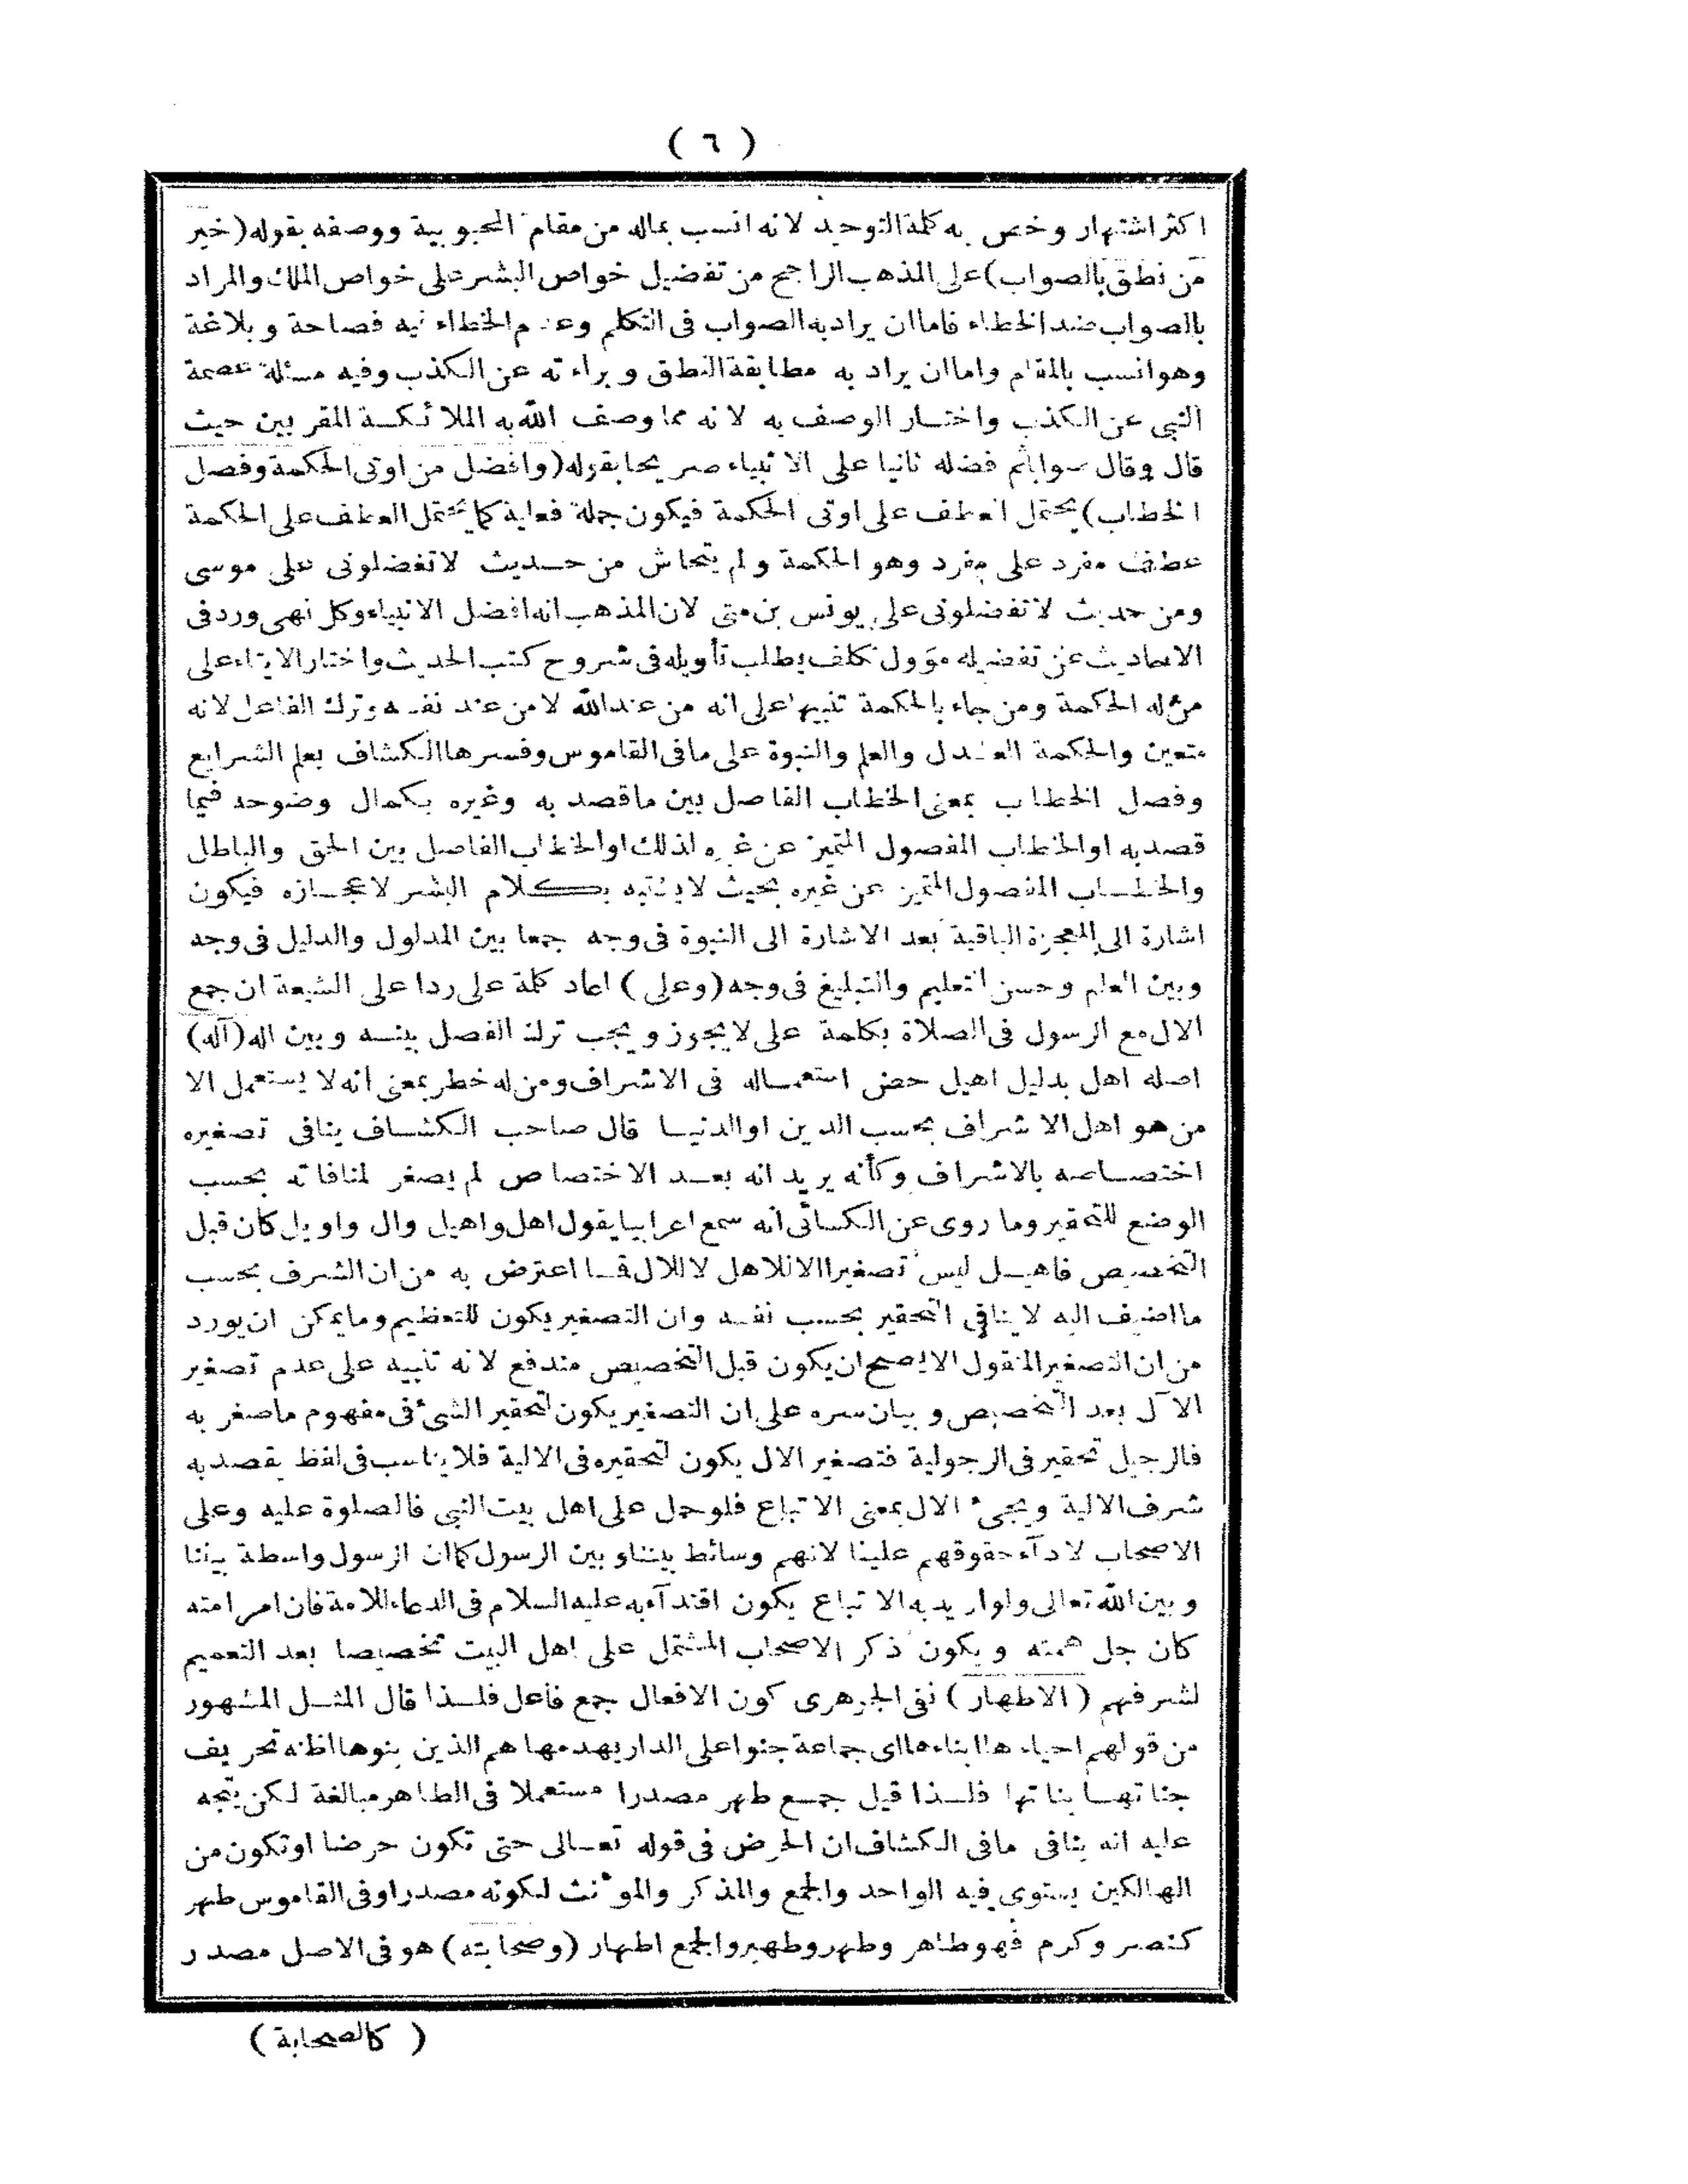 ( ٦ )
اكثر اشتهار وخص به كلمة التوحيد لانه انسب بماله من مقام المحبوبية ووصفه بقوله (خير
من نطق بالصواب) على المذهب الراجح من تفضيل خواص البشر على خواص الملك والمراد
بالصواب ضد الخطاء فاما ان يراد به الصواب فى التكلم وعدم الخطاء فيه فصاحة وبلاغة
وهو انسب بالمقام واما ان يراد به مطابقة النطق وبراءته عن الكذب وفيه مسئلة عصمة
النبى عن الكذب واختار الوصف به لانه مما وصف الله به الملائكة المقربين حيث
قال وقال صوابا ثم فضله ثانيا على الانبياء صريحا بقوله (وافضل من اوتى الحكمة وفصل
الخطاب) يحتمل العطف على اوتى الحكمة فيكون جملة فعلية كما يحتمل العطف على الحكمة
عطف مفرد على مفرد وهو الحكمة ولم يتحاش من حديث لاتفضلونى على موسى
ومن حديث لاتفضلونى على يونس بن متى لان المذهب انه افضل الانبياء وكل نهى ورد فى
الاحاديث عن تفضيله مؤول تكلف يطلب تأويله فى شروح كتب الحديث واختار الايتاء على
من له الحكمة ومن جاء بالحكمة تنبيها على انه من عند الله لا من عند نفسه وترك الفاعل لانه
متعين والحكمة العدل والعلم والنبوة على مافى القاموس وفسرها الكشاف بعلم الشرايع
وفصل الخطاب بمعنى الخطاب الفاصل بين ماقصد به وغيره بكمال وضوحه فيما
قصد به او الخطاب المفصول المتميز عن غيره لذلك او الخطاب الفاصل بين الحق والباطل
والخطاب المفصول المتميز عن غيره بحيث لايشتبه بكلام البشر لاعجازه فيكون
اشارة الى المعجزة الباقية بعد الاشارة الى النبوة فى وجه جمعا بين المدلول والدليل فى وجه
وبين العلم وحسن التعليم والتبليغ فى وجه (وعلى) اعاد كلمة على ردا على الشيعة ان جمع
الال مع الرسول فى الصلاة بكلمة على لايجوز ويجب ترك الفصل بينه وبين اله (آله)
اصله اهل بدليل اهيل خص استعماله فى الاشراف ومن له خطر بمعنى انه لا يستعمل الا
من هو اهل الاشراف بحسب الدين او الدنيا قال صاحب الكشاف ينافى تصغيره
اختصاصه بالاشراف وكأنه يريد انه بعد الاختصاص لم يصغر لمنافاته بحسب
الوضع للتحقير وما روى عن الكسائى انه سمع اعرابيا يقول اهل واهيل وال واويل كان قبل
التخصيص فاهيل ليس تصغيرا الا للاهل لا للال فما اعترض به من ان الشرف بحسب
ما اضيف اليه لا ينافى التحقير بحسب نفسه وان التصغير يكون للتعظيم وما يمكن ان يورد
من ان التصغير المنقول الايصح ان يكون قبل التخصيص مندفع لانه تنبيه على عدم تصغير
الآل بعد التخصيص وبيان سره على ان التصغير يكون لتحقير الشئ فى مفهوم ماصغر به
فالرجيل تحقير فى الرجولية فتصغير الال يكون لتحقيره فى الالية فلايناسب فى لفظ يقصد به
شرف الالية ويجئ الال بمعنى الاتباع فلو حمل على اهل بيت النبى فالصلوة عليه وعلى
الاصحاب لادآء حقوقهم علينا لانهم وسائط بيننا وبين الرسول كما ان الرسول واسطة بيننا
وبين الله تعالى ولو اريد به الاتباع يكون اقتدآء به عليه السلام فى الدعاء للامة فان امر امته
كان جل همته ويكون ذكر الاصحاب المشتمل على اهل البيت تخصيصا بعد التعميم
لشرفهم (الاطهار) نفى الجوهرى كون الافعال جمع فاعل فلذا قال المثل المشهور
من قولهم احياء ها ابناءها اى جماعة جنوا على الدار بهدمها هم الذين بنوها اظنه تحريف
جناتها بناتها فلذا قيل جمع طهر مصدرا مستعملا فى الطاهر مبالغة لكن يتجه
عليه انه ينافى مافى الكشاف ان الحرض فى قوله تعالى حتى تكون حرضا او تكون من
الهالكين يستوى فيه الواحد والجمع والمذكر والمؤنث لكونه مصدرا وفى القاموس طهر
كنصر وكرم فهو طاهر وطهر وطهير والجمع اطهار (وصحابته) هو فى الاصل مصدر
( كالصحابة )